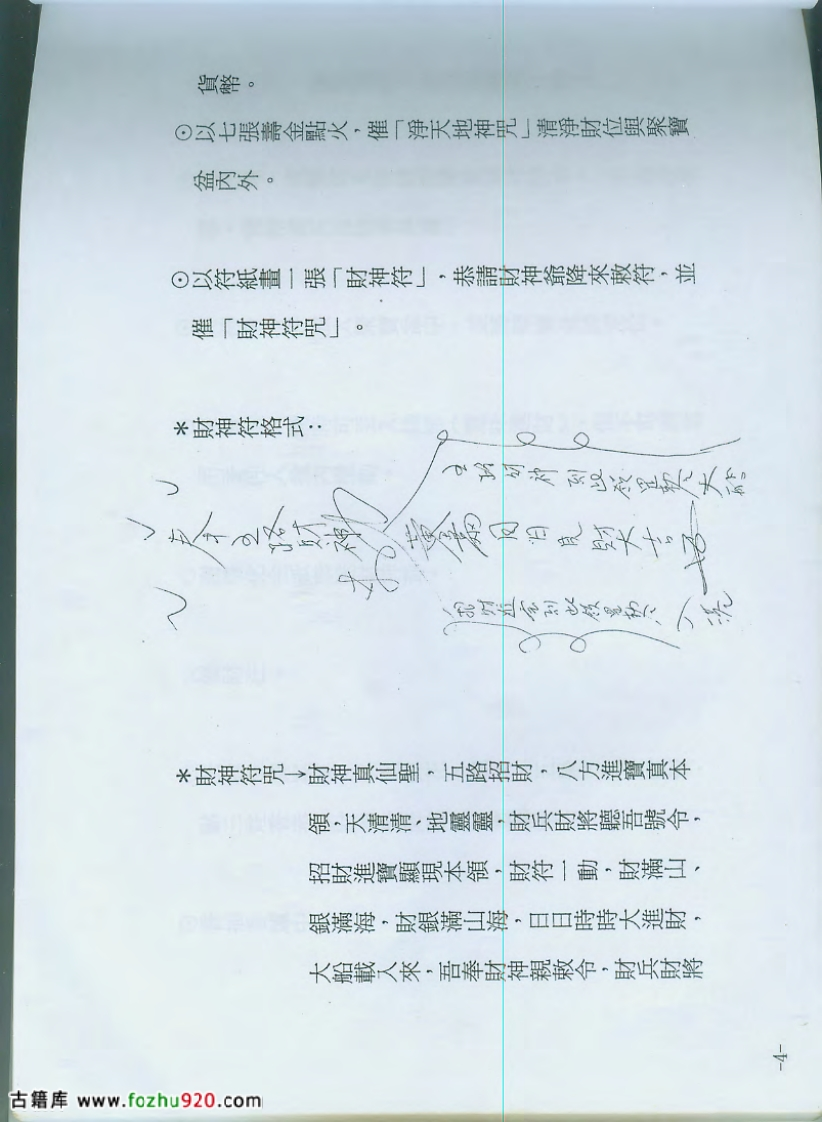 貨幣。
⊙以七張壽金點火，催「淨天地神咒」清淨財位與聚寶
盆內外。
⊙以符紙畫一張「財神符」，恭請財神爺降來敕符，並
催「財神符咒」。
*財神符格式：
五路財神到此發罡
財神
日日見財大吉
到此發罡
*財神符咒→財神真仙聖，五路招財，八方進寶真本
領，天清清，地靈靈，財兵財將聽吾號令，
招財進寶顯現本領，財符一動，財滿山、
銀滿海，財銀滿山海，日日時時大進財，
大船載入來，吾奉財神親敕令，財兵財將
-4-
古籍库 www.fozhu920.com